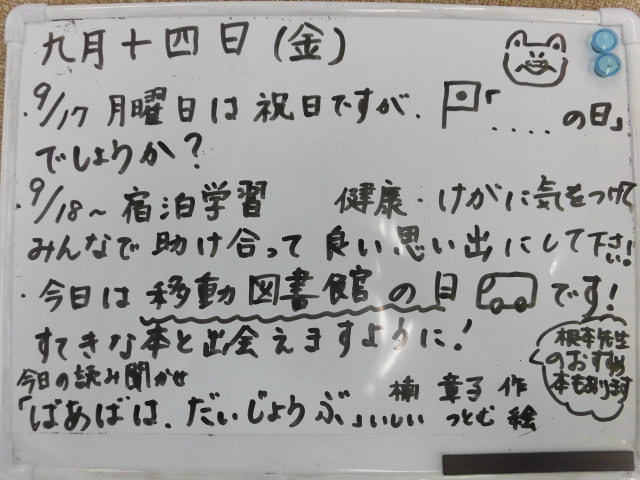 九月十四日(金)
・9/17 月曜日は祝日ですが、「....の日」
でしょうか?
・9/18~宿泊学習 健康・けがに気をつけて
みんなで助け合って良い思い出にして下さい!
・今日は移動図書館の日です!
すてきな本と出会えますように!
根本先生
のおすすめ
本もあります
今日の読み聞かせ
楠 章子 作
「ばあばは、だいじょうぶ」いしい つとむ 絵